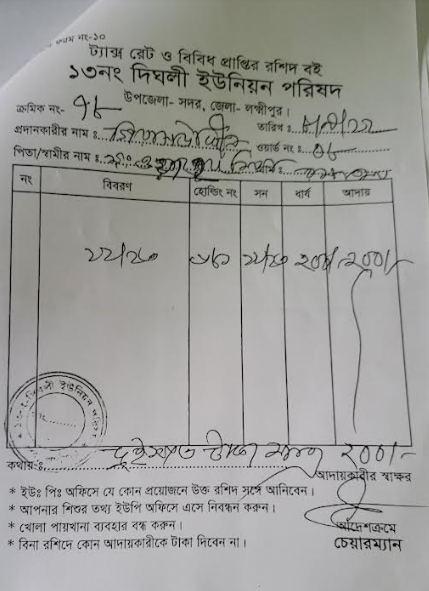 ফরম নং-১০
ট্যাক্স রেট ও বিবিধ প্রাপ্তির রশিদ বই
১৩নং দিঘলী ইউনিয়ন পরিষদ
উপজেলা- সদর, জেলা- লক্ষীপুর।
ক্রমিক নং- ৭৮
তারিখ ঃ
প্রদানকারীর নাম ঃ
ওয়ার্ড নং ঃ ০৮
পিতা/স্বামীর নাম ঃ
নং বিবরণ হোল্ডিং নং সন ধার্য আদায়
২২/২৩ ২২/২৩ ২০০/- ২০০/-
কথায়-ঃ দুইশত টাকা মাত্র ২০০/-
আদায়কারীর স্বাক্ষর
* ইউঃ পিঃ অফিসে যে কোন প্রয়োজনে উক্ত রশিদ সঙ্গে আনিবেন।
* আপনার শিশুর তথ্য ইউপি অফিসে এসে নিবন্ধন করুন।
* খোলা পায়খানা ব্যবহার বন্ধ করুন।
* বিনা রশিদে কোন আদায়কারীকে টাকা দিবেন না।
আদেশক্রমে
চেয়ারম্যান